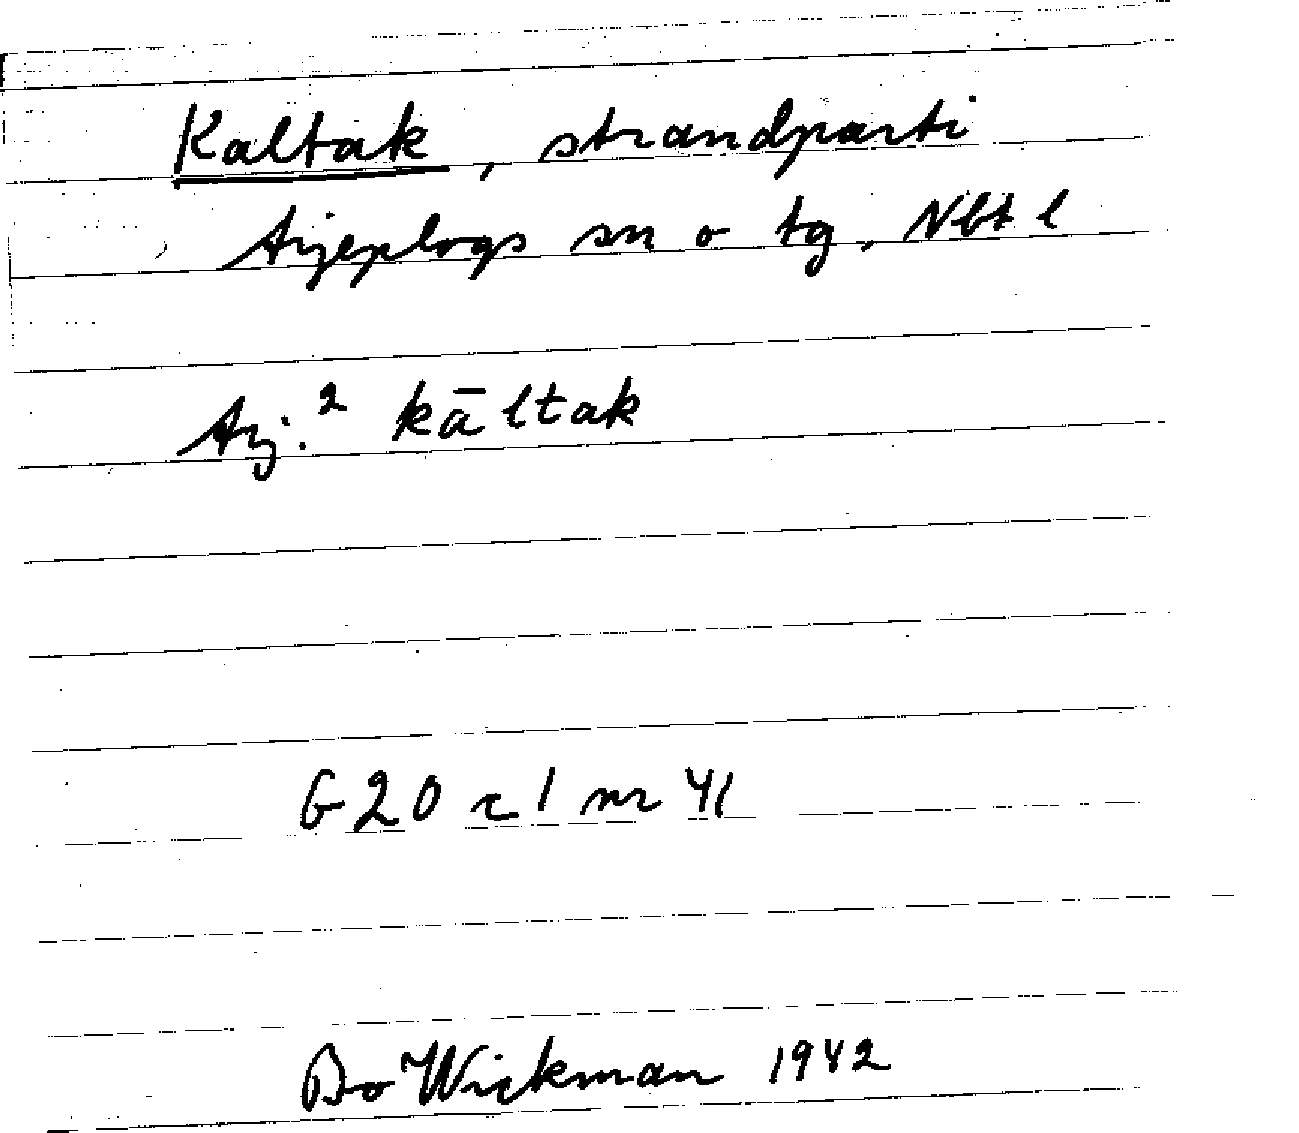 Kaltak, strandparti
Arjeplogs sn o tg. Nbt l
Arj.² kāltak
G 20 c 1 nr 41
Bo Wickman 1942